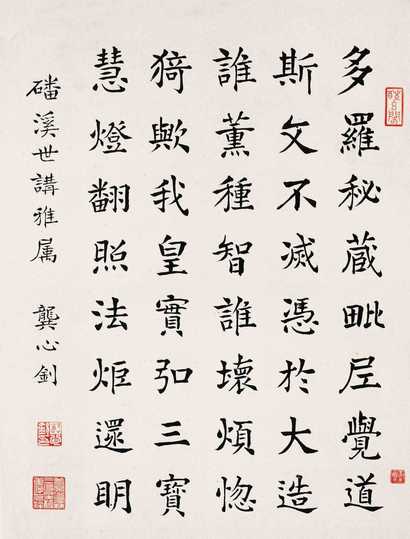 多羅秘蔵毗尼覺道
斯文不滅憑於大造
誰薰種智誰壞煩惚
猗歟我皇實弘三寶
慧燈翻照法炬還明
磻溪世講雅属 龔心釗